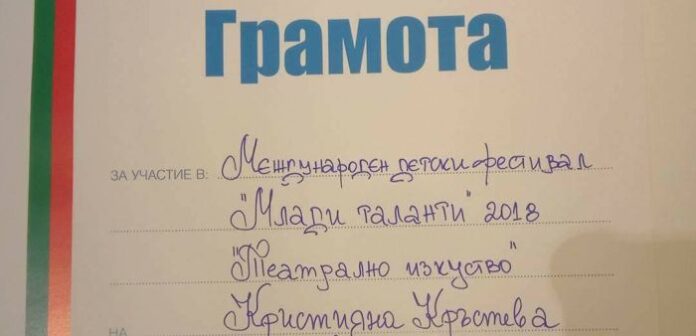 Грамота
ЗА УЧАСТИЕ В: Международен детски фестивал
"Млади таланти" 2018
"Театрално изкуство"
НА Кристияна Кръстева